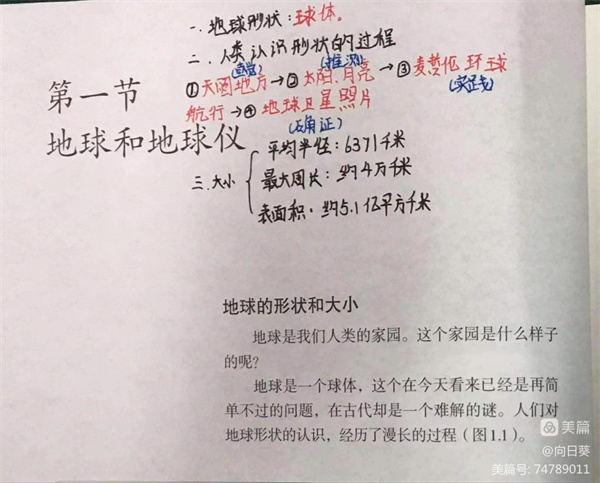 一.地球形状:球体。
二.人类认识形状的过程
(直觉) (推测)
①天圆地方→②太阳、月亮→③麦哲伦环球
(实践)
航行→④地球卫星照片
(确证)
第一节
地球和地球仪
三.大小
平均半径:6371千米
最大周长:约4万千米
表面积:约5.1亿平方千米
地球的形状和大小
地球是我们人类的家园。这个家园是什么样子
的呢?
地球是一个球体,这个在今天看来已经是再简
单不过的问题,在古代却是一个难解的谜。人们对
地球形状的认识,经历了漫长的过程(图1.1)。
美篇
@向日葵
美篇号: 74789011